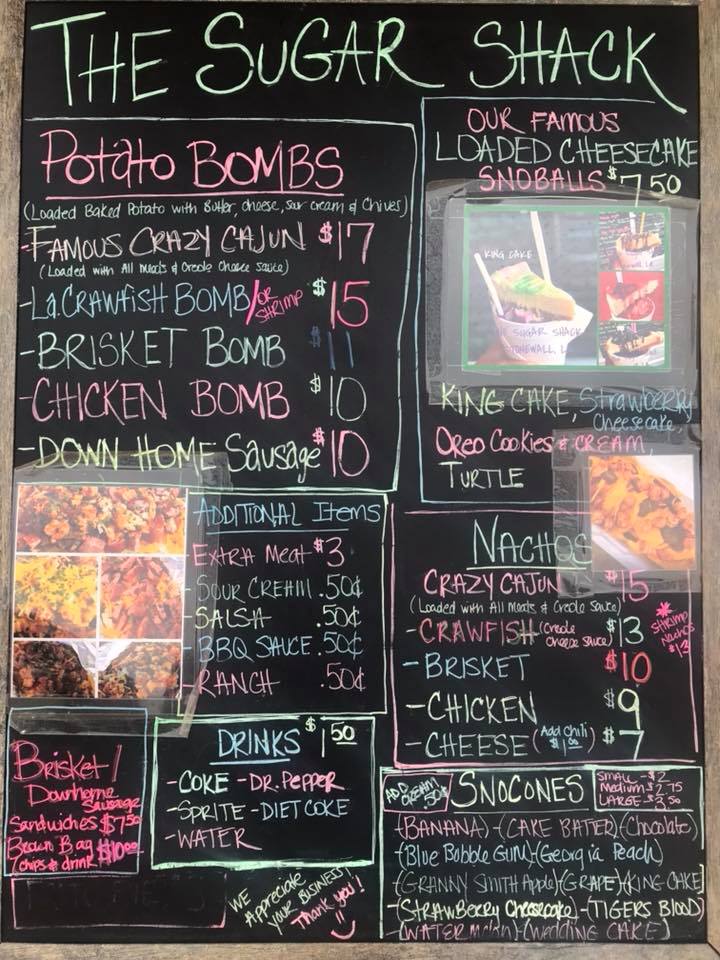 THE SUGAR SHACK
Potato BOMBS
(Loaded Baked Potato with Butter, cheese, sour cream & Chives)
-FAMOUS CRAZY CAJUN $17
(Loaded with All meats & Creole Cheese Sauce)
-La. CRAWFISH BOMB/OR SHRIMP $15
-BRISKET BOMB $11
-CHICKEN BOMB $10
-DOWN HOME Sausage $10
OUR FAMOUS
LOADED CHEESECAKE
SNOBALLS $7.50
KING CAKE
THE SUGAR SHACK
STONEWALL, LA
KING CAKE, Strawberry
Cheesecake,
Oreo Cookies & CREAM,
TURTLE
ADDITIONAL Items
EXTRA Meat $3
-SOUR CREAM .50¢
-SALSA .50¢
-BBQ SAUCE .50¢
-RANCH .50¢
NACHOS
CRAZY CAJUN $15
(Loaded with All Meats & Creole Sauce)
-CRAWFISH (Creole Cheese Sauce) $13
SHRIMP
Nachos
$13
-BRISKET $10
-CHICKEN $9
-CHEESE (Add Chili $1.00) $7
Brisket/
Downhome
Sausage
Sandwiches $7.50
Brown Bag $10.00
/chips & drink
DRINKS $1.50
-COKE -DR. PEPPER
-SPRITE -DIET COKE
-WATER
WE
Appreciate
YOUR BUSINESS!
Thank you!
ADD
CREAM
.50¢
SNOCONES
SMALL -$2
Medium $2.75
LARGE -$3.50
-(BANANA)-(CAKE BATTER)-(Chocolate)
-(Blue Bubble GUM)-(Georgia Peach)
-(GRANNY SMITH Apple)-(GRAPE)-(KING CAKE)
-(STRAWBerry Cheesecake)-(TIGERS BLOOD)
-(WATERmelon)-(Wedding CAKE)